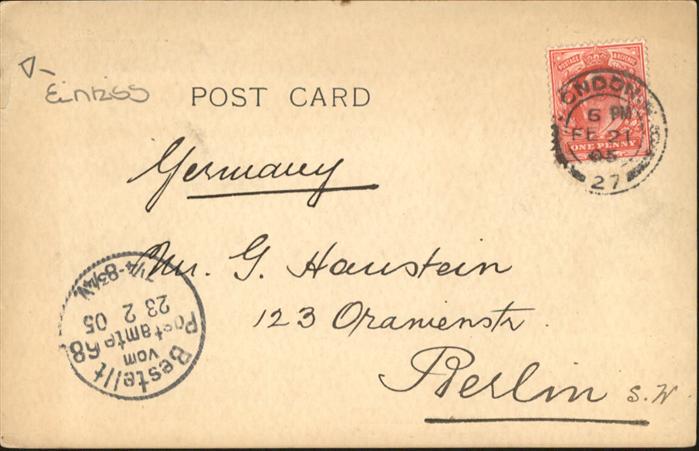 Einriss
POST CARD
POSTAGE REVENUE
ONE PENNY
LONDON
6 PM
FE 21
05
27
Germany
Mr. G. Haustein
123 Oranienstr.
Berlin S.W
Bestellt
vom
Postamte 68
23 2 05